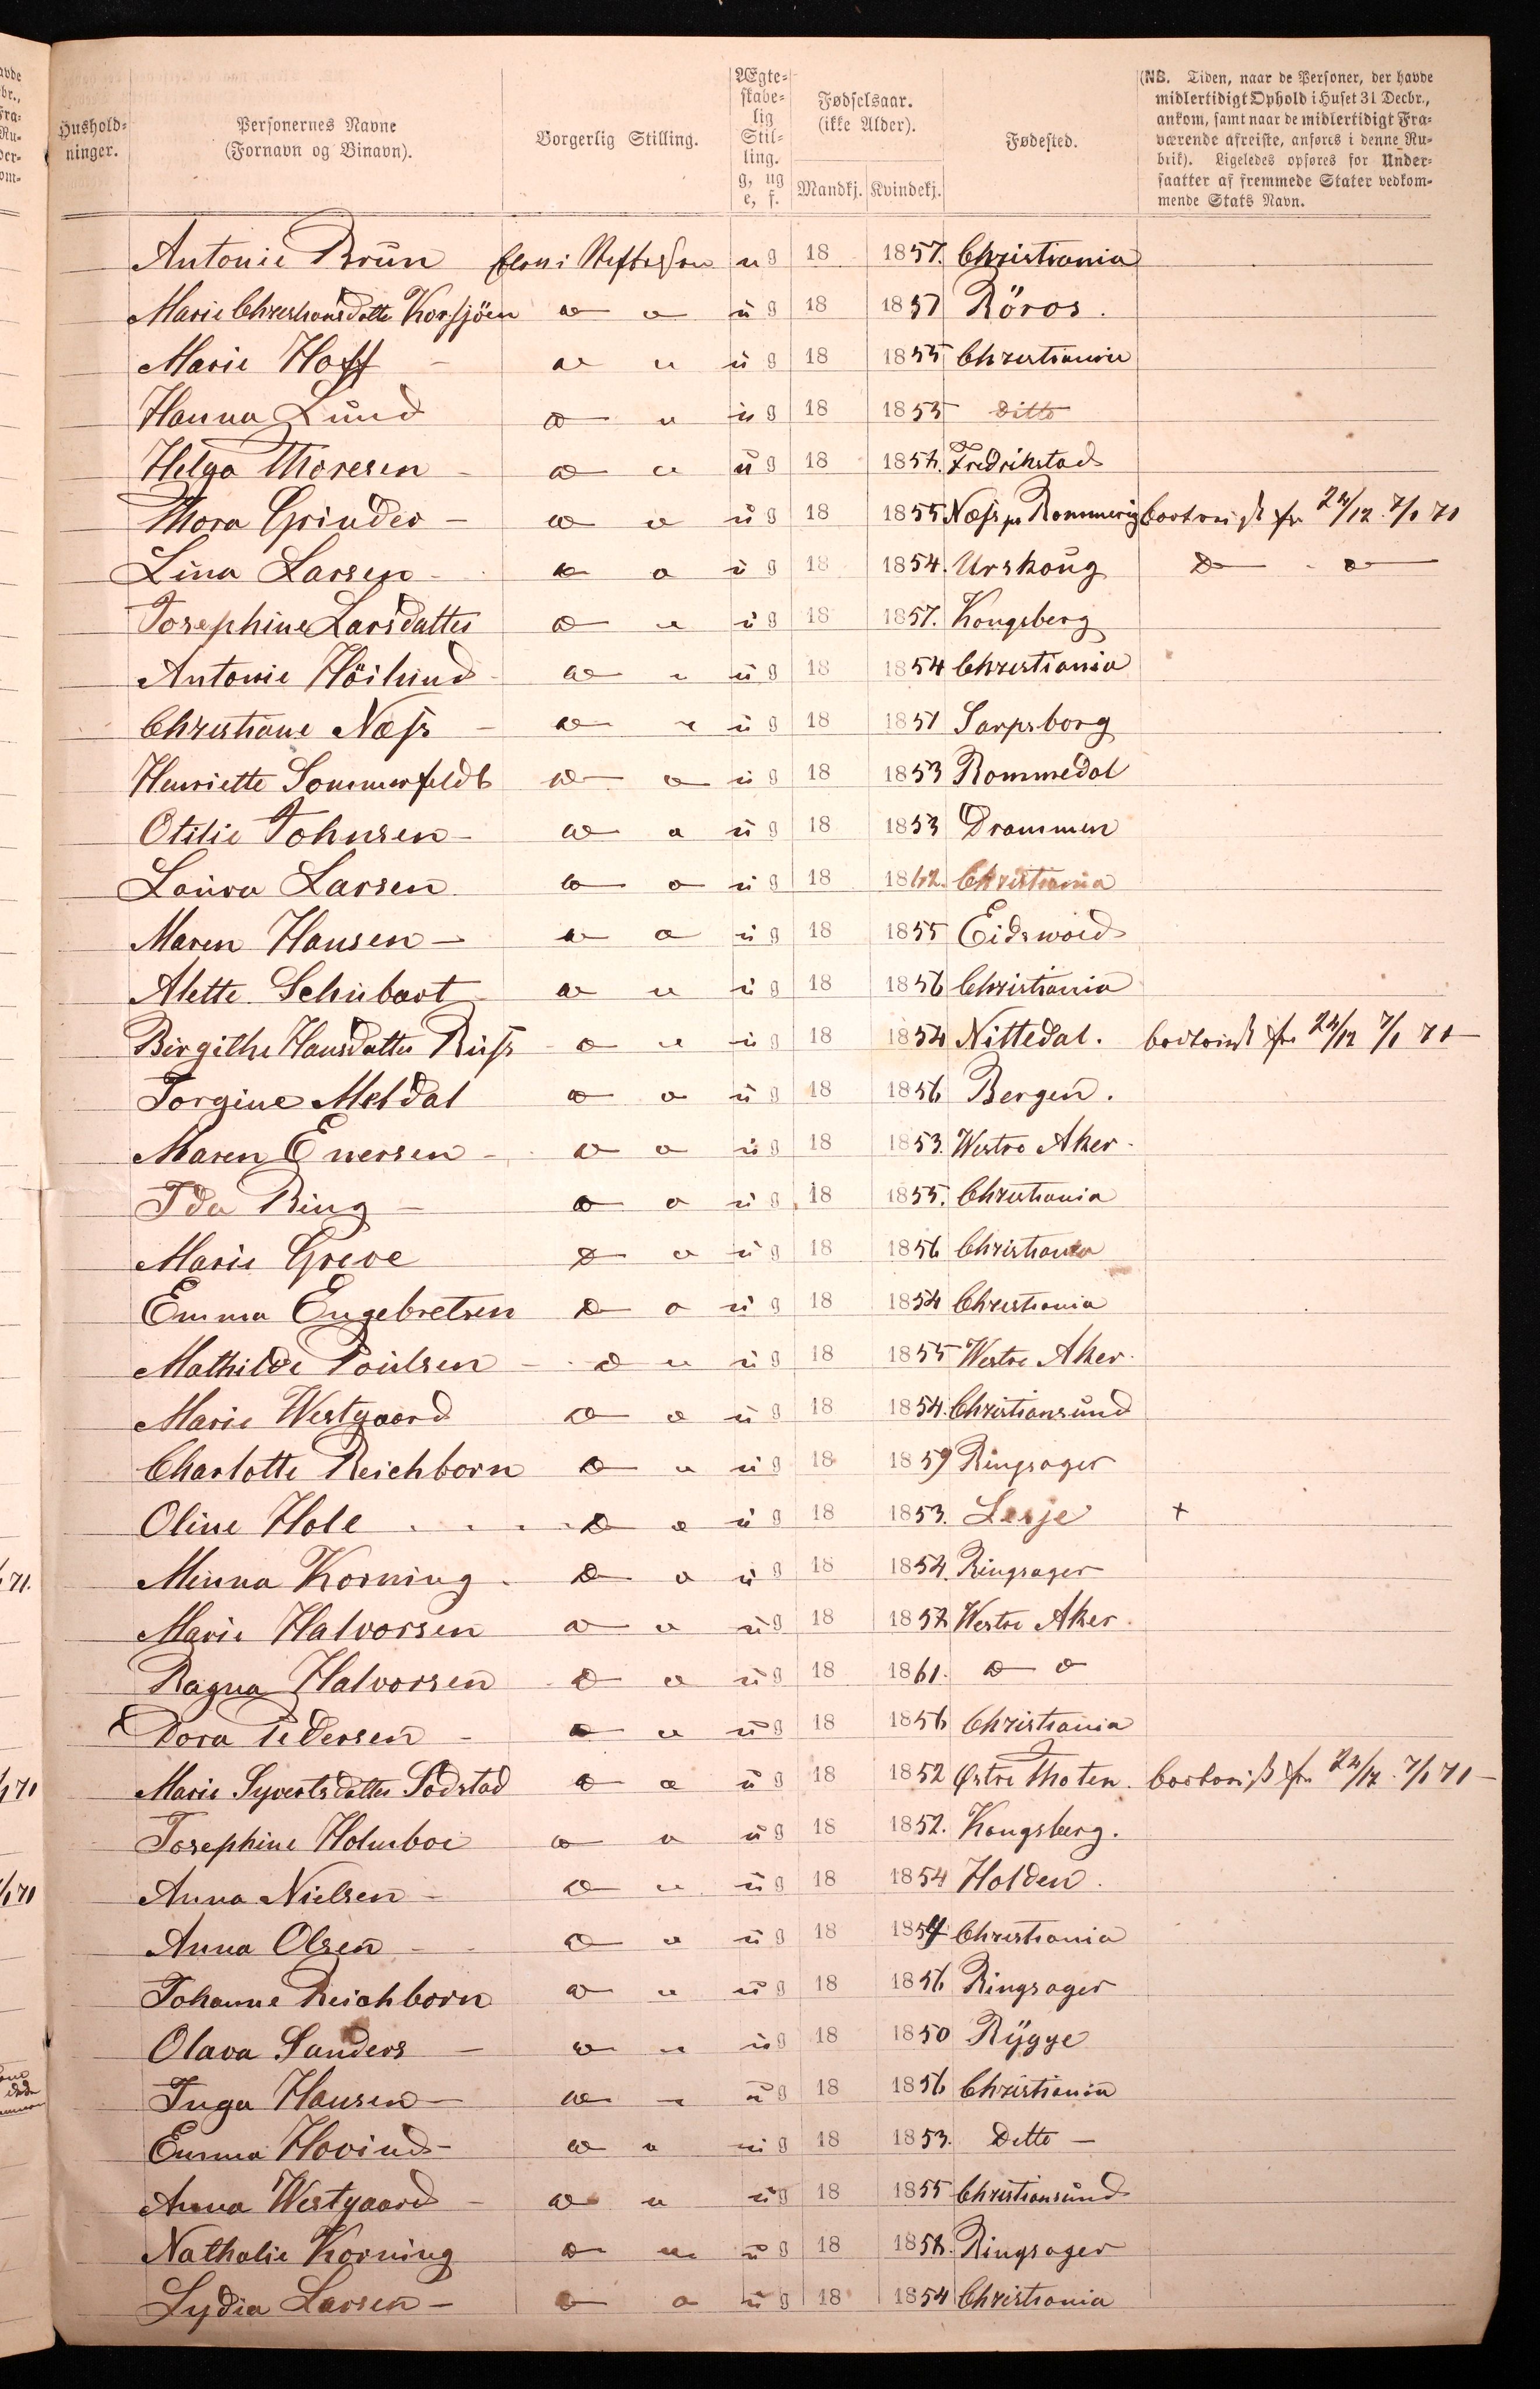 Hushold-
ninger.
Personernes Navne
(Fornavn og Binavn).
Borgerlig Stilling.
Ægte-
skabe-
lig
Stil-
ling.
g, ug
e, f.
Fødselsaar.
(ikke Alder).
Mandkj. Kvindekj.
Fødested.
(NB. Tiden, naar de Personer, der havde
midlertidigt Ophold i Huset 31 Decbr.,
ankom, samt naar de midlertidigt Fra-
værende afreiste, anføres i denne Ru-
brik). Ligeledes opføres for Under-
saatter af fremmede Stater vedkom-
mende Stats Navn.
Antonie Brun Elev i ug 18 1857. Christiania
Marie Christiansdatte Korsjöen do do ug 18 1857 Röros.
Marie Hoff do do ug 18 1855 Christiania
Hanna Lund do do ug 18 1853 Ditto
Helga Thoresen do do ug 18 185 Fredrikstad
Thora Grinder do do ug 18 1855 Næss pr Rommerig bortreist fra 24/12 7/1 71
Lina Larsen do do ug 18 1854. Urskoug do do
Josephine Larsdatter do do ug 18 1857. Kongsberg
Antonie Höilund do do ug 18 1854 Christiania
Christiane Næss do do ug 18 1851 Sarpsborg
Henriette Sommerfeldt do do ug 18 1853 Rommedal
Otilie Johnsen do do ug 18 1853 Drammen
Laura Larsen do do ug 18 1862. Christiania
Maren Hansen do do ug 18 1855 Eidswold
Alette Schubart do do ug 18 1856 Christiania
Birgithe Hansdatter do do ug 18 1854 Nittedal. bortreist fra 24/12 7/1 71
Torgine Meldal do do ug 18 1856 Bergen.
Maren Enersen do do ug 18 1853. Westre Aker
Ida Ring do do ug 18 1855. Christiania
Marie Greve do do ug 18 1856 Christiania
Emma Engebretsen do do ug 18 1854 Christiania
Mathilde Poulsen do do ug 18 1855 Westre Aker.
Marie Westgaard do do ug 18 1854. Christiansund
Charlotte Reichborn do do ug 18 1859 Ringsager
Oline Hole do do ug 18 1853. Lesje +
Minna Korning do do ug 18 1854. Ringsager
Marie Halvorsen do do ug 18 185 Westre Aker.
Ragna Halvorsen do do ug 18 1861. do do
Dora Pedersen do do ug 18 1856 Christiania
Marie Syvertsdatter Sodstad do do ug 18 1852 Østre Thoten. bortreist fra 24/12 7/1 71
Josephine Holmboe do do ug 18 1852. Kongsberg.
Anna Nielsen do do ug 18 1854 Holden.
Anna Olsen do do ug 18 185 Christiania
Johanne Reichborn do do ug 18 1856 Ringsager
Olava Sanders do do ug 18 1850 Rygge
Inga Hansen do do ug 18 1856 Christiania
Emma Hovind do do ug 18 1853. Ditto
Anna Westgaard do do ug 18 1855 Christiansund
Nathalie Korning do do ug 18 185 Ringsager
Lydia Larsen do do ug 18 1854 Christiania